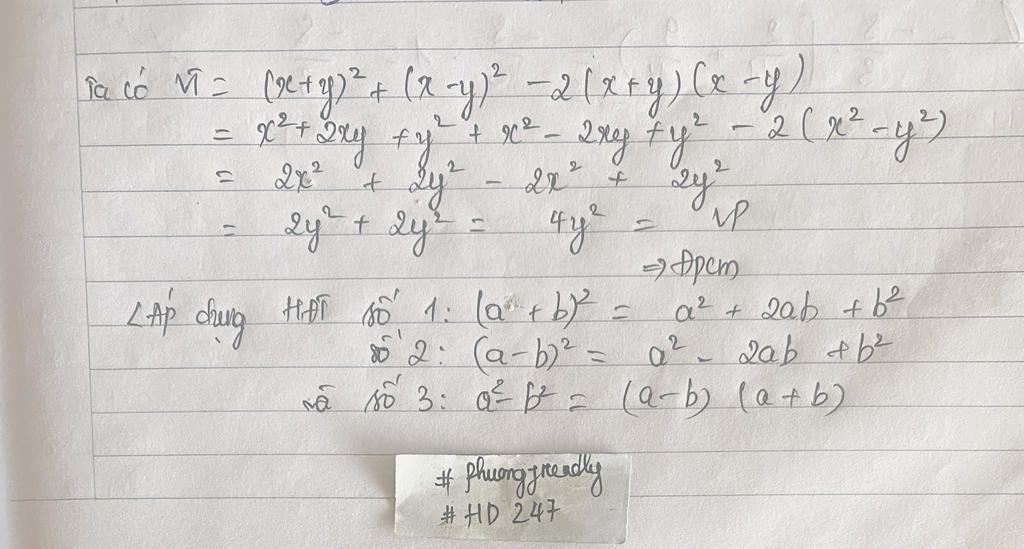 Ta có VT = (x+y)² + (x-y)² - 2(x+y)(x-y)
= x² + 2xy + y² + x² - 2xy + y² - 2(x² - y²)
= 2x² + 2y² - 2x² + 2y²
= 2y² + 2y² = 4y² = VP
⇒ Đpcm
<Áp dụng HĐT số 1: (a + b)² = a² + 2ab + b²
số 2: (a - b)² = a² - 2ab + b²
và số 3: a² - b² = (a - b) (a + b)
# phuongfriendly
# HD 247